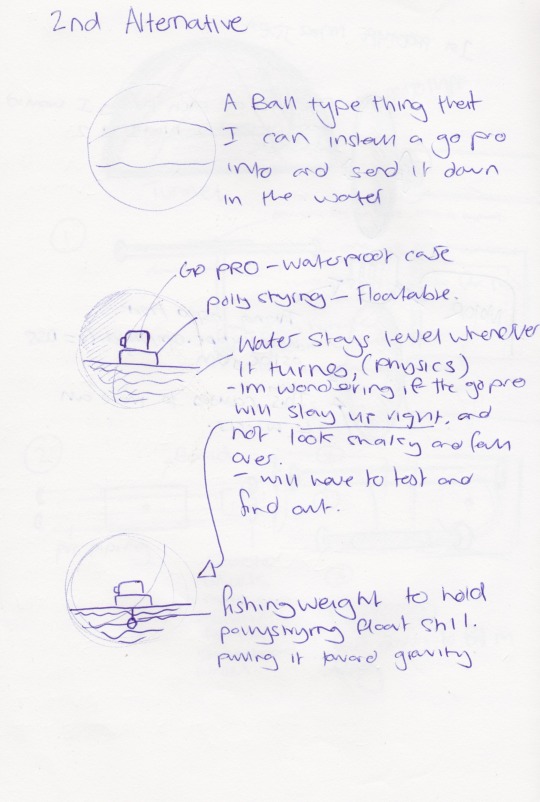 2nd Alternative
A Ball type thing that
I can install a go pro
into and send it down
in the water
GO PRO - waterproof case
polly stying - Floatable.
water stays level whenever
it turnes, (physics)
- Im wondering if the gopro
will stay up right, and
not look shaky and fall
over.
- will have to test and
find out.
fishing weight to hold
pollystyring float still.
pulling it toward gravity